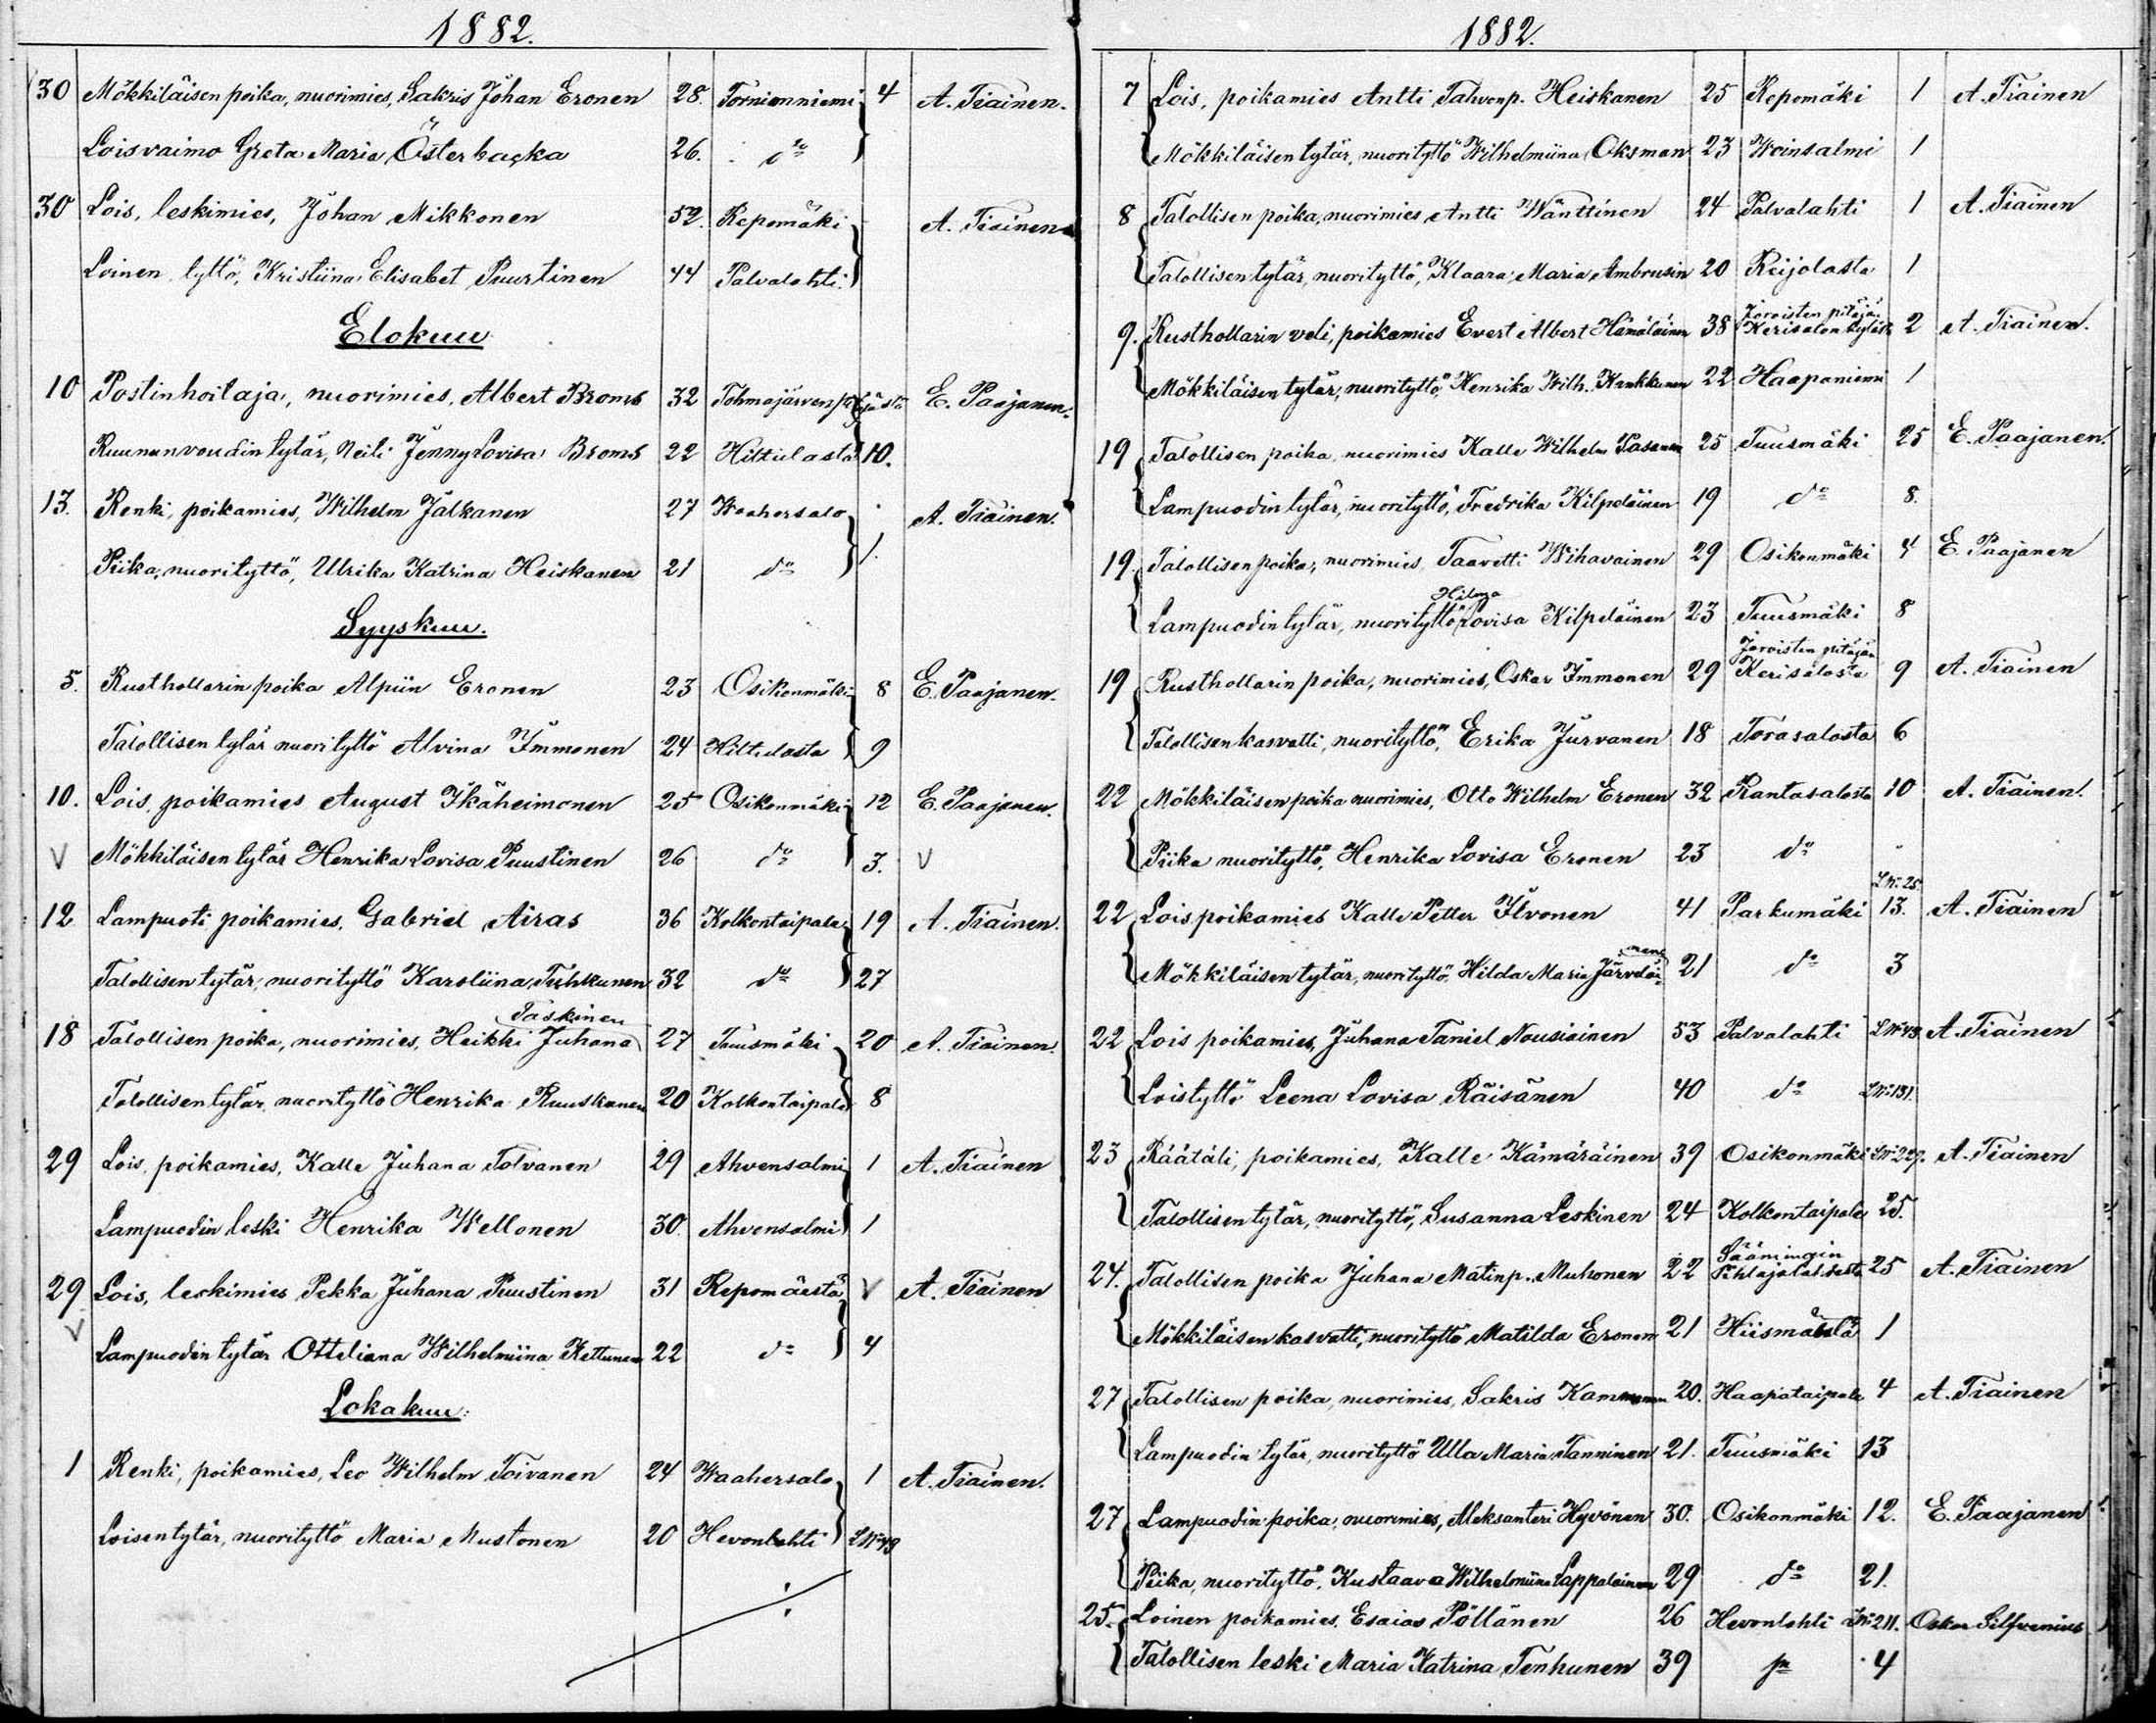 1882.
30 Mökkiläisen poika, nuorimies, Sakris Johan Eronen 28. Tornionniemi 4 A. Tiainen.
Loisvaimo Greta Maria Österbacka 26. do
30 Lois, leskimies, Johan Mikkonen 52. Repomäki A. Tiainen
Loinen tyttö, Kristiina Elisabet Puurtinen 44 Palvalahti.
Elokuu
10 Postinhoitaja, nuorimies, Albert Broms 32 Tohmajärven E. Paajanen.
Ruununvoudin tytär, Neiti Jenny Lovisa Broms 22 Hiltulasta 10.
13. Renki, poikamies, Wilhelm Jalkanen 27 Waahersalo A. Tiainen.
Piika, nuorityttö, Ulrika Katrina Heiskanen 21 do 1.
Syyskuu.
5. Rusthollarin poika Alpiin Eronen 23 Osikonmäki 8 E. Paajanen.
Talollisen tytär nuorityttö Alvina Immonen 24 Hiltulasta 9
10. Lois, poikamies August Ikäheimonen 25 Osikonmäki 12 E. Paajanen.
V Mökkiläisen tytär Henrika Lovisa Puustinen 26 do 3. V
12 Lampuoti poikamies, Gabriel Airas 36 Kolkontaipale 19 A. Tiainen.
Talollisen tytär, nuorityttö Karoliina Tuhkunen 32 do 27
Taskinen
18 Talollisen poika, nuorimies, Heikki Juhana 27 Tuusmäki 20 A. Tiainen.
Talollisen tytär, nuorityttö Henrika Ruuskanen 20 Kolkontaipale 8
29 Lois, poikamies, Kalle Juhana Tolvanen 29 Ahvensalmi 1 A. Tiainen
Lampuodin leski Henrika Wellonen 30. Ahvensalmi 1
29 Lois, leskimies Pekka Juhana Puustinen 31 Repomäestä V A. Tiainen
V Lampuodin tytär Otteliana Wilhelmiina Kettunen 22 do 4
Lokakuu:
1 Renki, poikamies, Leo Wilhelm Toivanen 24 Waahersalo 1 A. Tiainen.
Loisen tytär, nuorityttö Maria Mustonen 20 Hevonlahti L No 49
1882.
7 Lois, poikamies Antti Tahvonp. Heiskanen 25 Repomäki 1 A. Tiainen
Mökkiläisen tytär, nuorityttö Wilhelmiina Oksman 23 Woinsalmi 1
8 Talollisen poika, nuorimies Antti Wänttinen 24 Palvalahti 1 A. Tiainen
Talollisen tytär, nuorityttö, Klaara Maria Ambrusin 20 Reijolasta 1
Joroisten pitäjän
9. Rusthollarin veli, poikamies Evert Albert Hämäläinen 38 Kerisalon kylästä 2 A. Tiainen.
Mökkiläisen tytär, nuorityttö, Henrika Wilh. Kankkunen 22 Haapaniemi 1
19 Talollisen poika, nuorimies Kalle Wilhelm Pasanen 25 Tuusmäki 25 E. Paajanen.
Lampuodin tytär, nuorityttö, Fredrika Kilpeläinen 19 do 8.
19. Talollisen poika, nuorimies, Taavetti Wihavainen 29 Osikonmäki 4 E. Paajanen
Hilma
Lampuodin tytär, nuorityttö Lovisa Kilpeläinen 23 Tuusmäki 8
Joroisten pitäjän
19 Rusthollarin poika, nuorimies, Oskar Immonen 29 Kerisalosta 9 A. Tiainen
Talollisen kasvatti, nuorityttö, Erika Jurvanen 18 Torasalosta 6
22 Mökkiläisen poika nuorimies, Otto Wilhelm Eronen 32 Rantasalosta 10 A. Tiainen.
Piika nuorityttö, Henrika Lovisa Eronen 23 do
L No 25
22 Lois poikamies Kalle Petter Ilvonen 41 Parkumäki 13. A. Tiainen
Mökkiläisen tytär, nuorityttö, Hilda Maria Järveläi- 21 do 3
22 Lois poikamies, Juhana Taniel Nousiainen 53 Palvalahti L No 49 A. Tiainen
Loistyttö Leena Lovisa Räisänen 40 do L No 131.
23 Räätäli, poikamies, Kalle Kämäräinen 39 Osikonmäki L No 229. A. Tiainen
Talollisen tytär, nuorityttö, Susanna Leskinen 24 Kolkontaipale 25.
Säämingin
24. Talollisen poika Juhana Matinp. Muhonen 22 Pihlajalahdesta 25 A. Tiainen
Mökkiläisen kasvatti, nuorityttö Matilda Eronen 21 Hiismäeltä 1
27 Talollisen poika, nuorimies, Sakris Kammonen 20. Haapataipale 4 A. Tiainen
Lampuodin tytär, nuorityttö Ulla Maria Tanninen 21. Tuusmäki 13
27 Lampuodin poika, nuorimies, Aleksanteri Hyvönen 30. Osikonmäki 12. E. Paajanen
Piika, nuorityttö, Kustaava Wilhelmiina Lappalainen 29 do 21.
25. Loinen poikamies, Esaias Pöllänen 26 Hevonlahti L No 211. Oskar Silfvenius
Talollisen leski Maria Katrina Tenhunen 39 4